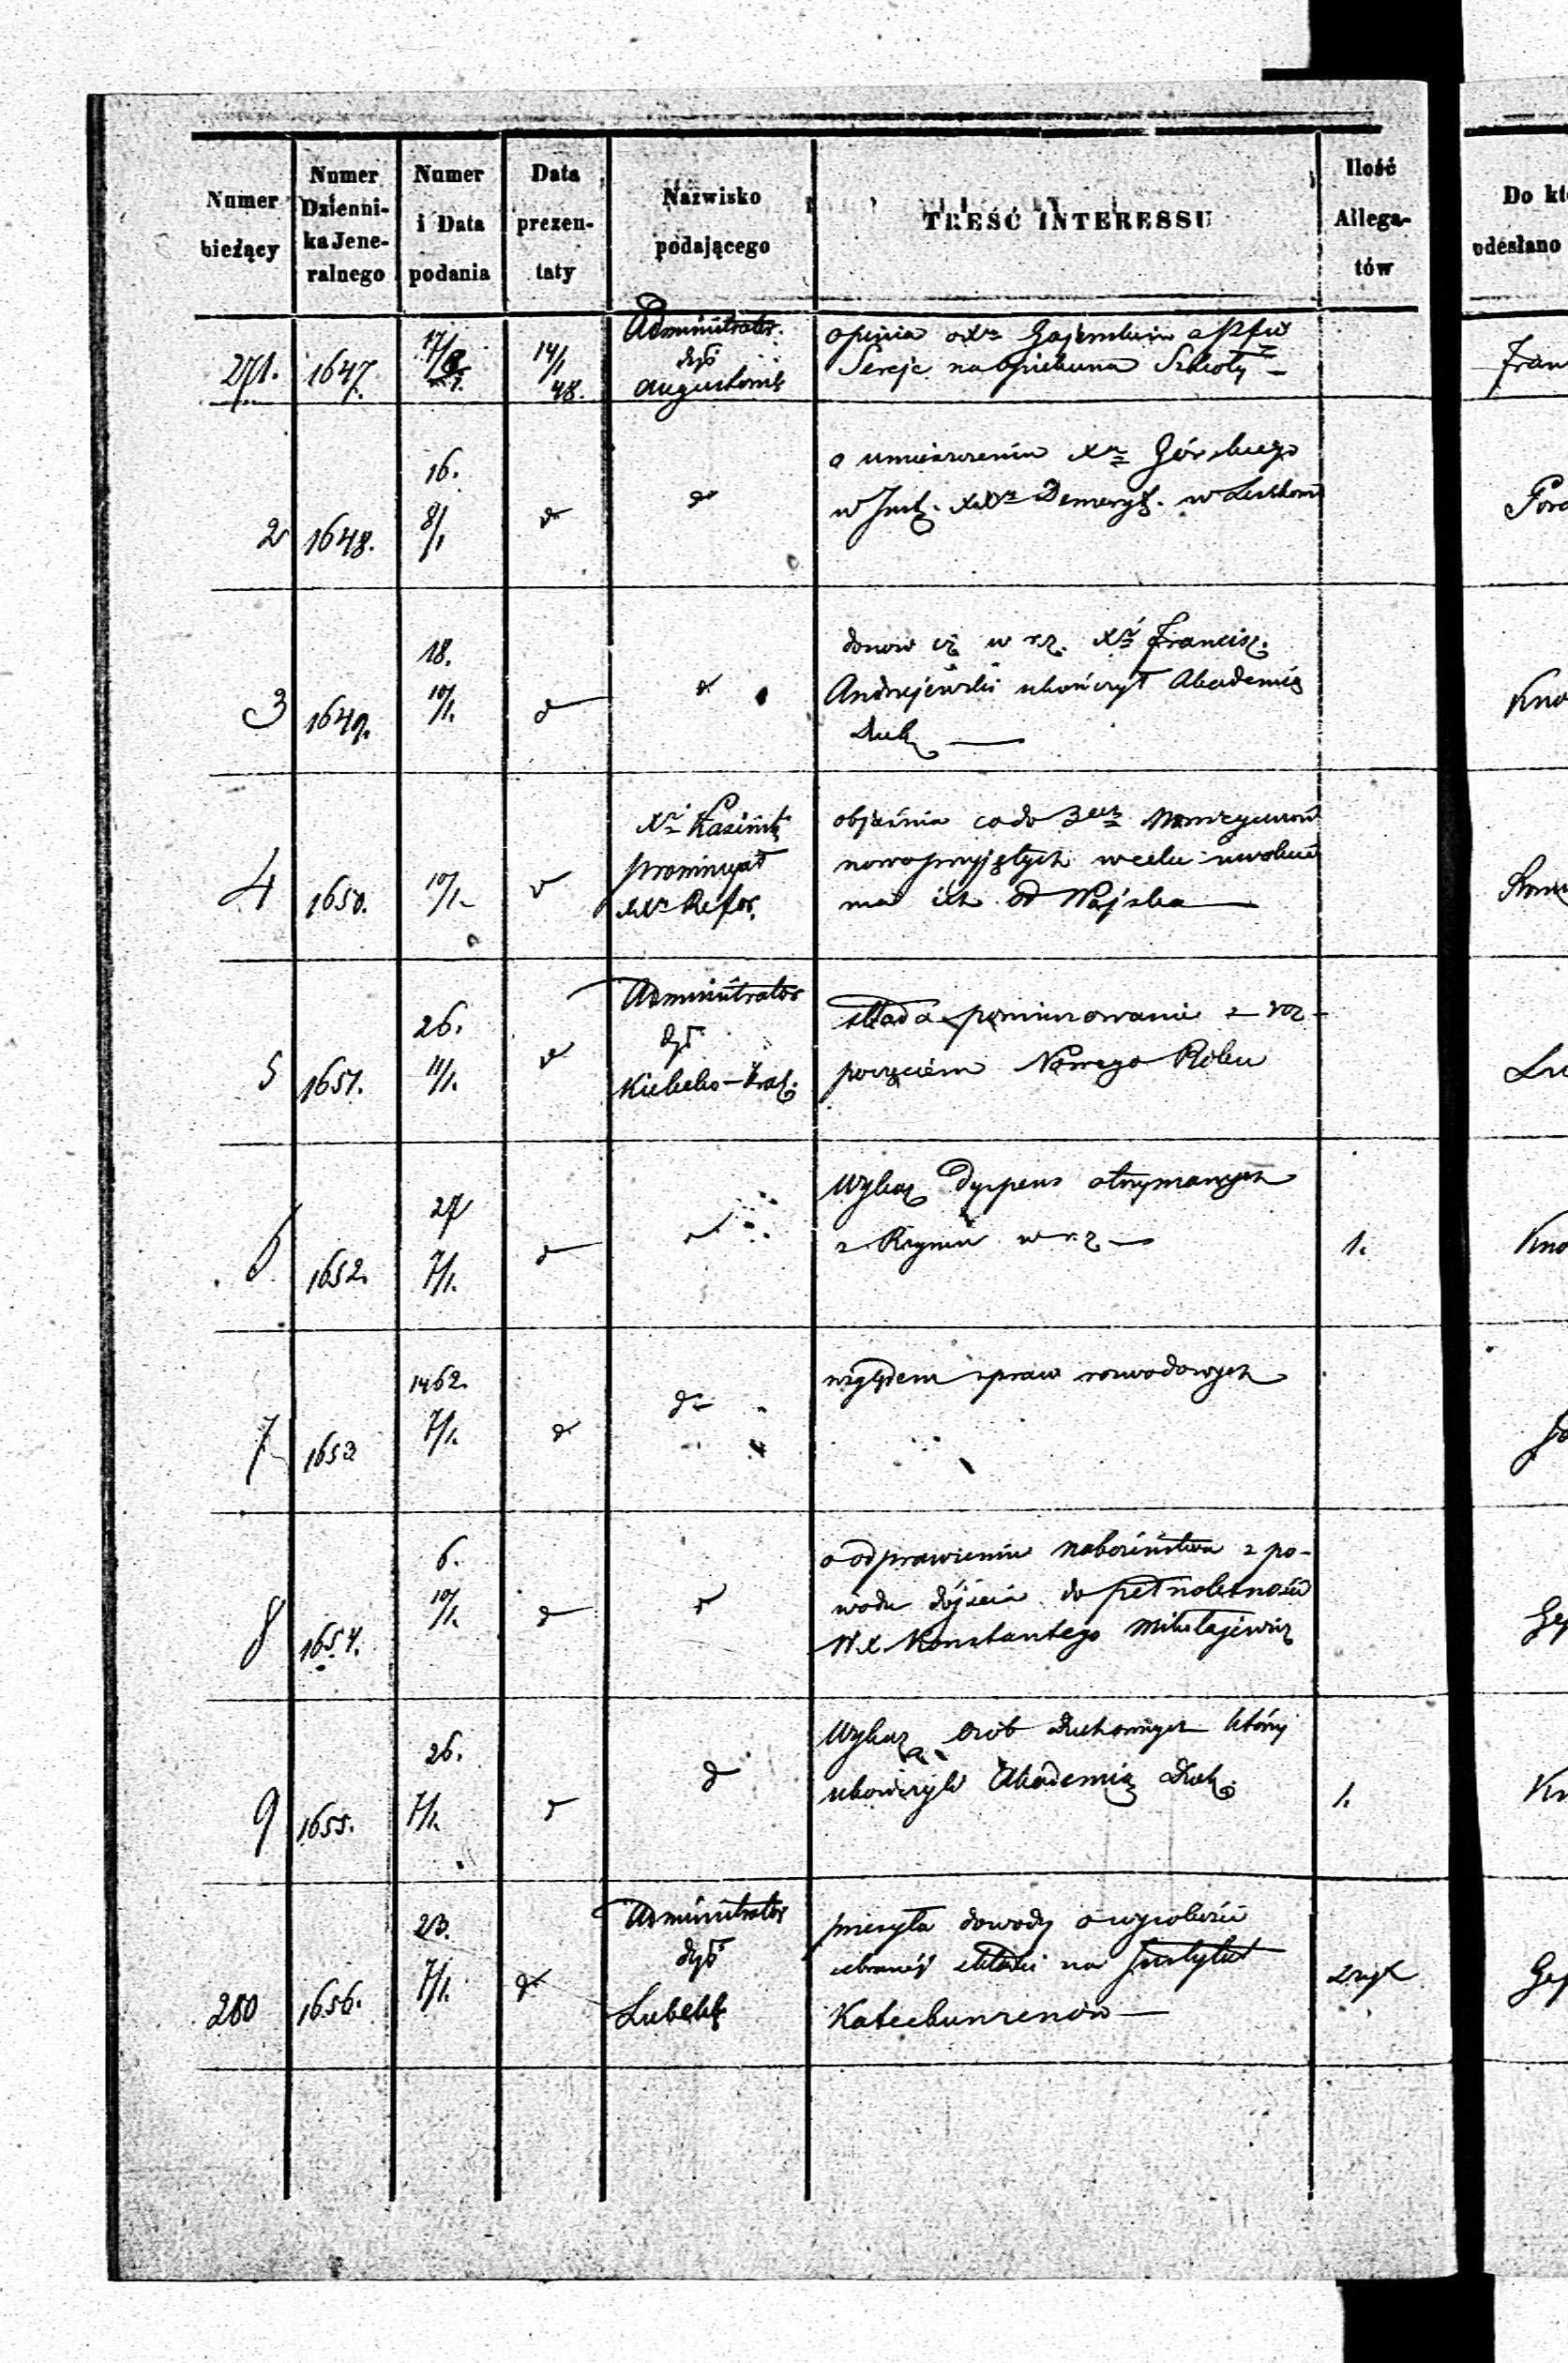 Numer bieżący
Numer Dziennika Jeneralnego
Numer i Data podania
Data prezentaty
Nazwisko podającego
TREŚĆ INTERESSU
Ilość Allegatów
Do kt
odesłano
271. 1647. 17/ 14/1 48. Administrator dyś Augustows
opinia o Xu a
Sereje na opiekuna Szkoły –
Fran
2 1648. 16. 8/1 d°
o umieszczeniu Xa Górskiego
w Inst. XX Demeryt. w
3 1649. 18. 10/1. d°
donosi iż w r.z. Xdz Francisz.
Andrzejewski ukończył Akademią
Duch —
Kno
4 1650. 10/1. d° Xdz Kazimi prowincyał XX Refor.
objaśnia co do 3ech
nowoprzyjętych w celu uwolnie
nia ich od Wojska —
5 1651. 26. 11/1. d° Administrator dyś Kielecko-Krak.
składa powinszowanie z roz-
poczęciem Nowego Roku
Lu
6 1652. 27 7/1. d°
Wykaz dyspens otrzymanych
z Rzymu w r.z. — 1.
Kno
7 1653 1462. 7/1. d° d°
względem spraw rozwodowych
8 1654. 6. 10/1. d° d°
o odprawieniu nabożeństwa z po-
wodu dójścia do pełnoletności
W.X. Konstantego Mikołajewicz
Gę
9 1655. 26. 7/1. d° d°
Wykaz osób duchownych którzy
ukończyli Akademią Duch. 1.
Kn
280 1656. 23. 7/1. d° Administrator dyś Lubelsk
przesyła dowody o wysokości
zebranéj składki na Instytut
Katechumenów —
Gę